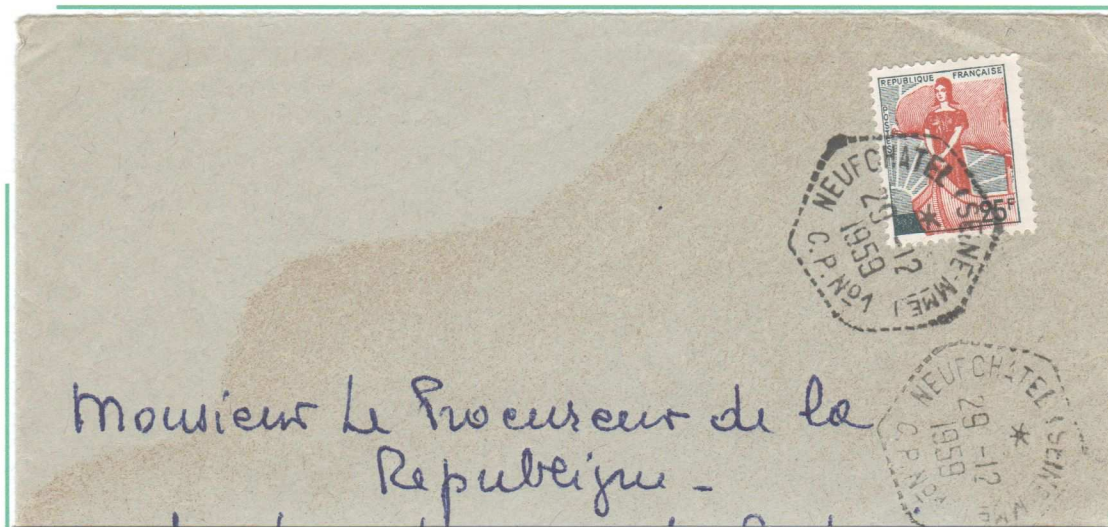 REPUBLIQUE FRANÇAISE
POSTES
25F
NEUFCHATEL (SEINE-MME)
29-12
1959
C.P.No1
NEUFCHATEL (SEINE MME
29-12
1959
C.P.No1
Monsieur Le Procureur de la
Republique -